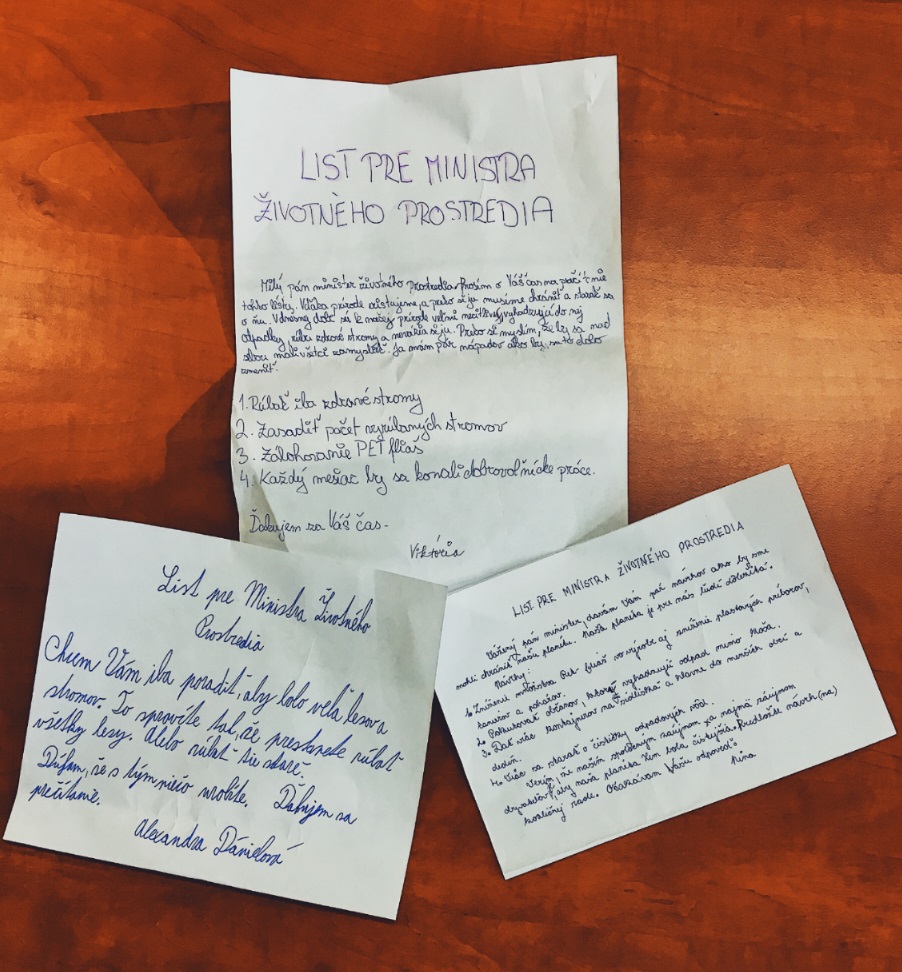 LIST PRE MINISTRA
ŽIVOTNÉHO PROSTREDIA
Milý pán minister životného prostredia prosím o Váš čas na prečítanie
tohto listu. Vďaka prírode existujeme, a preto si ju musíme chrániť a starať sa
o ňu. V dnešnej dobe sú k našej prírode veľmi necitliví, vyhadzujú do nej
odpadky, rúbu zdravé stromy a nevážia si ju. Preto si myslím, že by sa nad
sebou mali všetci zamyslieť. Ja mám pár nápadov ako by sa to dalo
zmeniť.
1. Rúbať iba zdravé stromy
2. Zasadiť počet vyrúbaných stromov
3. Zálohovanie PET fliaš
4. Každý mesiac by sa konali dobrovoľnícke práce.
Ďakujem za Váš čas.
Viktória
List pre Ministra Životného
Prostredia
Chcem Vám iba poradiť, aby bolo veľa lesov a
stromov. To spravíte tak, že prestanete rúbať
všetky lesy. Alebo rúbať tie staré.
Dúfam, že s tým niečo urobíte. Ďakujem za
prečítanie.
Alexandra Dánielová
LIST PRE MINISTRA ŽIVOTNÉHO PROSTREDIA
Vážený pán minister, dávam Vám pár návrhov ako by sme
mohli chrániť našu planétu. Naša planéta je pre nás ľudí dôležitá.
Návrhy:
1. Zníženie množstva Pet fliaš vo výrobe aj zníženie plastových príborov,
tanierov a pohárov.
2. Pokutovať občanov, ktorý vyhadzujú odpad mimo koša.
3. Dať viac kontajnerov na sídliská a hlavne do menších obcí a
dedín.
4. Viac sa starať o čističky odpadových vôd.
Verím, že naším spoločným záujmom je najmä záujmom
aby naša planéta Zem bola čistejšia. Predložte návrh (na)
koaličnej rade. Očakávam Vašu odpoveď.
Nina